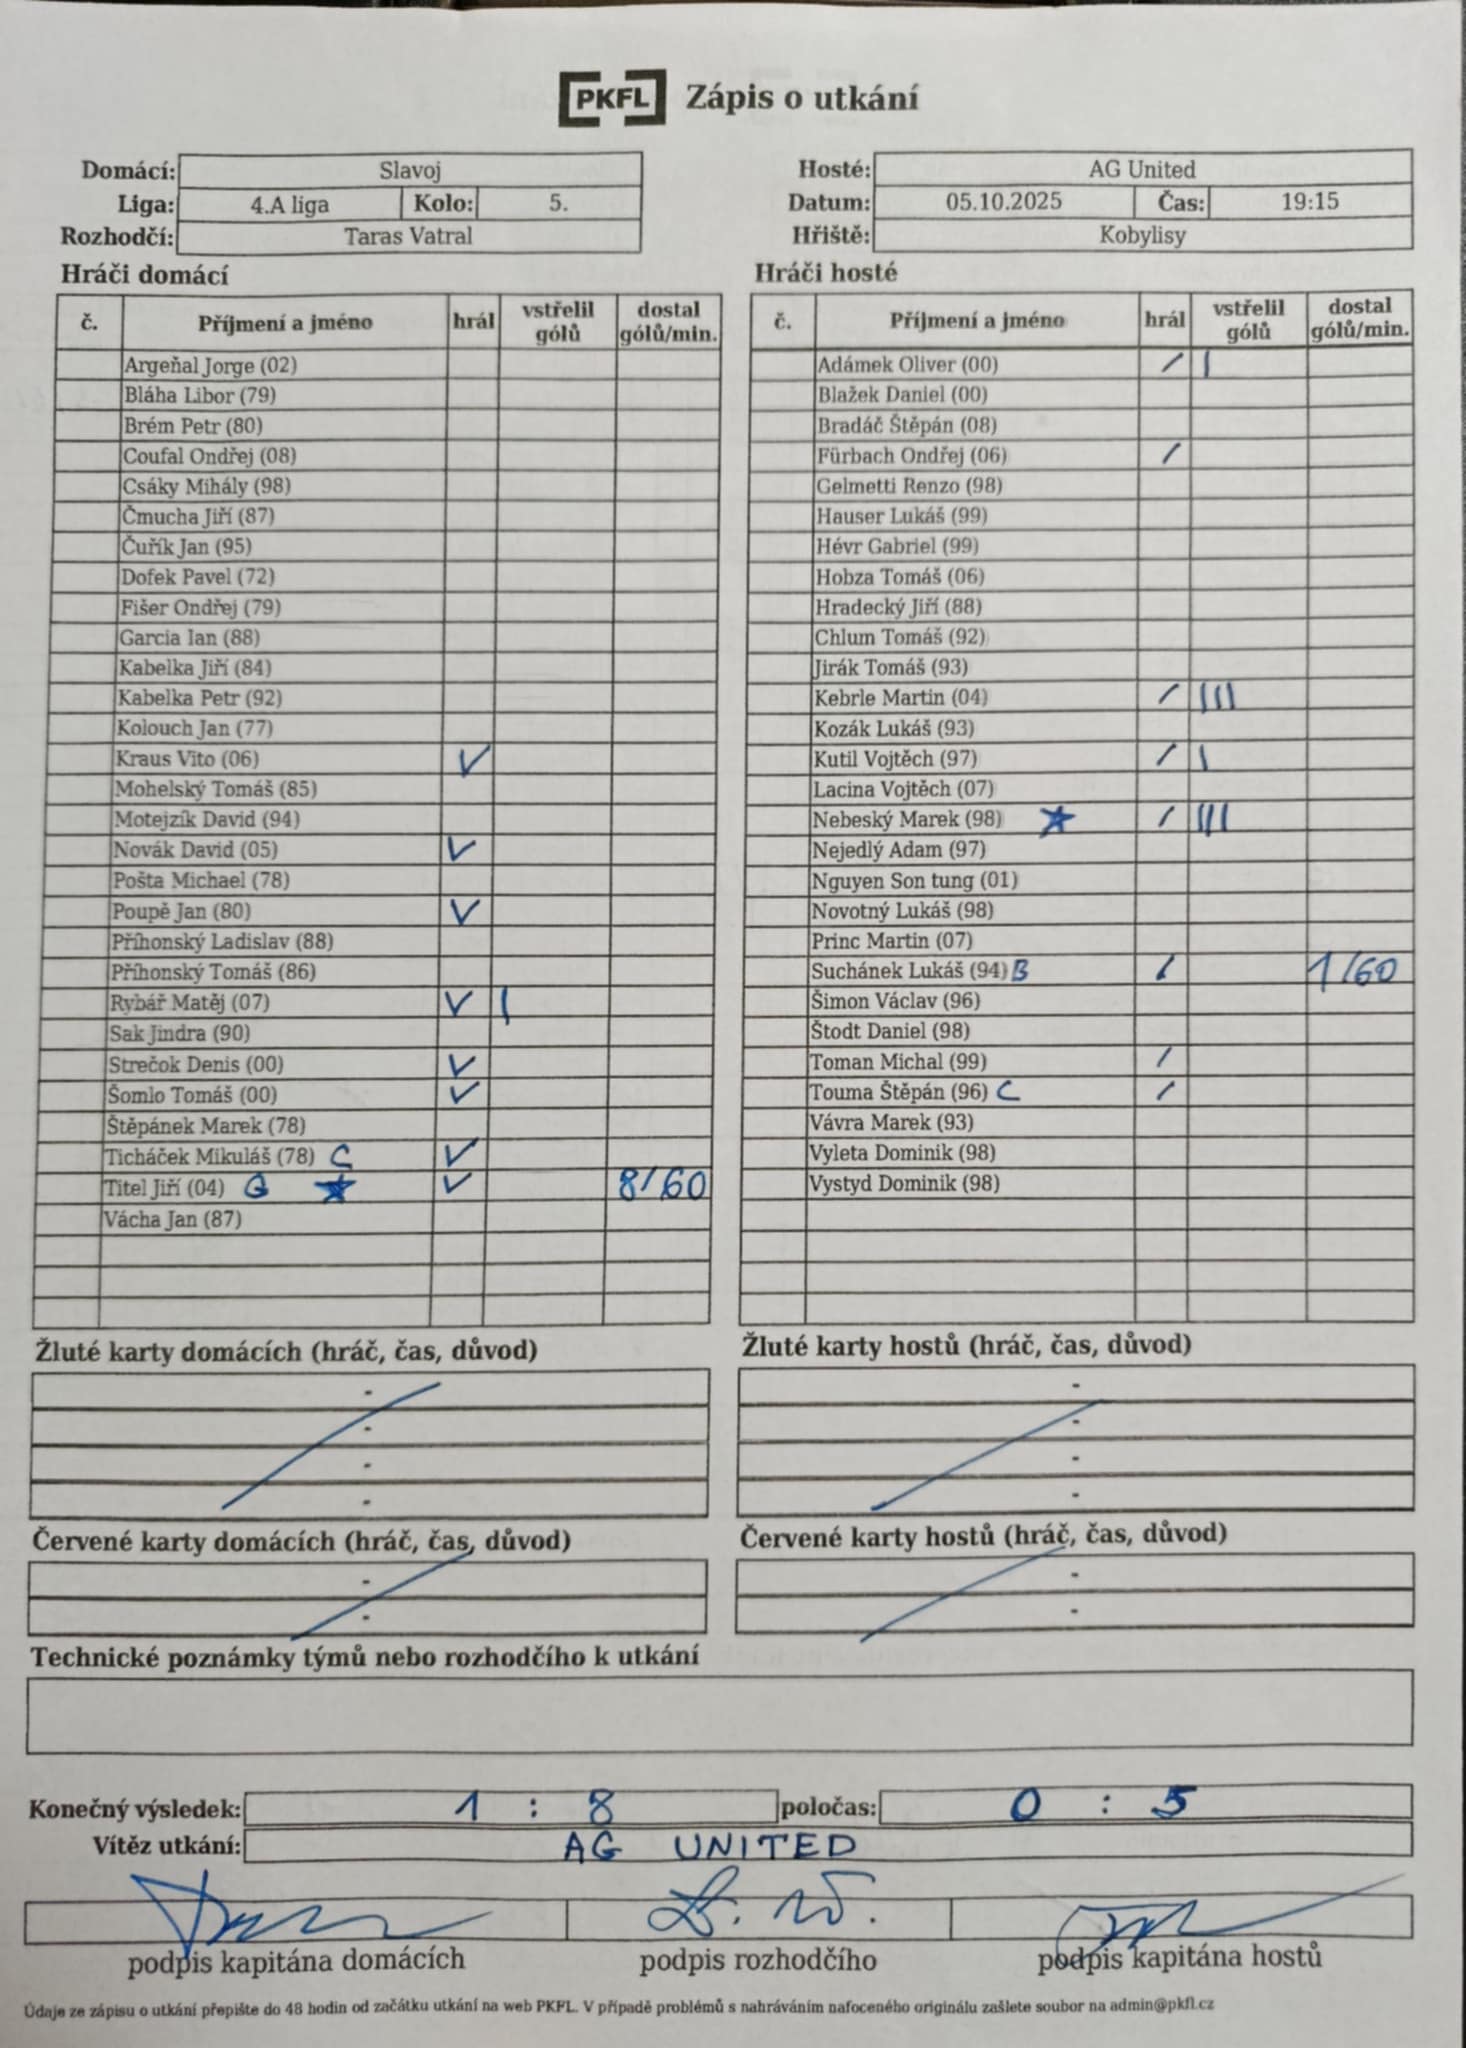 PKFL Zápis o utkání
Domácí: Slavoj
Liga: 4.A liga Kolo: 5.
Rozhodčí: Taras Vatral
Hosté: AG United
Datum: 05.10.2025 Čas: 19:15
Hřiště: Kobylisy
Hráči domácí
č. Příjmení a jméno hrál vstřelil gólů dostal gólů/min.
Argeňal Jorge (02)
Bláha Libor (79)
Brém Petr (80)
Coufal Ondřej (08)
Csáky Mihály (98)
Čmucha Jiří (87)
Čuřík Jan (95)
Dofek Pavel (72)
Fišer Ondřej (79)
Garcia Ian (88)
Kabelka Jiří (84)
Kabelka Petr (92)
Kolouch Jan (77)
Kraus Vito (06) ✓
Mohelský Tomáš (85)
Motejzík David (94)
Novák David (05) ✓
Pošta Michael (78)
Poupě Jan (80) ✓
Příhonský Ladislav (88)
Příhonský Tomáš (86)
Rybář Matěj (07) ✓ |
Sak Jindra (90)
Strečok Denis (00) ✓
Šomlo Tomáš (00) ✓
Štěpánek Marek (78)
Ticháček Mikuláš (78) C ✓
Titel Jiří (04) G ★ ✓ 8/60
Vácha Jan (87)
Hráči hosté
č. Příjmení a jméno hrál vstřelil gólů dostal gólů/min.
Adámek Oliver (00) / |
Blažek Daniel (00)
Bradáč Štěpán (08)
Fürbach Ondřej (06) /
Gelmetti Renzo (98)
Hauser Lukáš (99)
Hévr Gabriel (99)
Hobza Tomáš (06)
Hradecký Jiří (88)
Chlum Tomáš (92)
Jirák Tomáš (93)
Kebrle Martin (04) / |||
Kozák Lukáš (93)
Kutil Vojtěch (97) / |
Lacina Vojtěch (07)
Nebeský Marek (98) ★ / |||
Nejedlý Adam (97)
Nguyen Son tung (01)
Novotný Lukáš (98)
Princ Martin (07)
Suchánek Lukáš (94) B / 1/60
Šimon Václav (96)
Štodt Daniel (98)
Toman Michal (99) /
Touma Štěpán (96) C /
Vávra Marek (93)
Vyleta Dominik (98)
Vystyd Dominik (98)
Žluté karty domácích (hráč, čas, důvod)
-
-
-
-
Žluté karty hostů (hráč, čas, důvod)
-
-
-
-
Červené karty domácích (hráč, čas, důvod)
-
-
Červené karty hostů (hráč, čas, důvod)
-
-
Technické poznámky týmů nebo rozhodčího k utkání
Konečný výsledek: 1 : 8 poločas: 0 : 5
Vítěz utkání: AG UNITED
podpis kapitána domácích podpis rozhodčího podpis kapitána hostů
Údaje ze zápisu o utkání přepište do 48 hodin od začátku utkání na web PKFL. V případě problémů s nahráváním nafoceného originálu zašlete soubor na admin@pkfl.cz